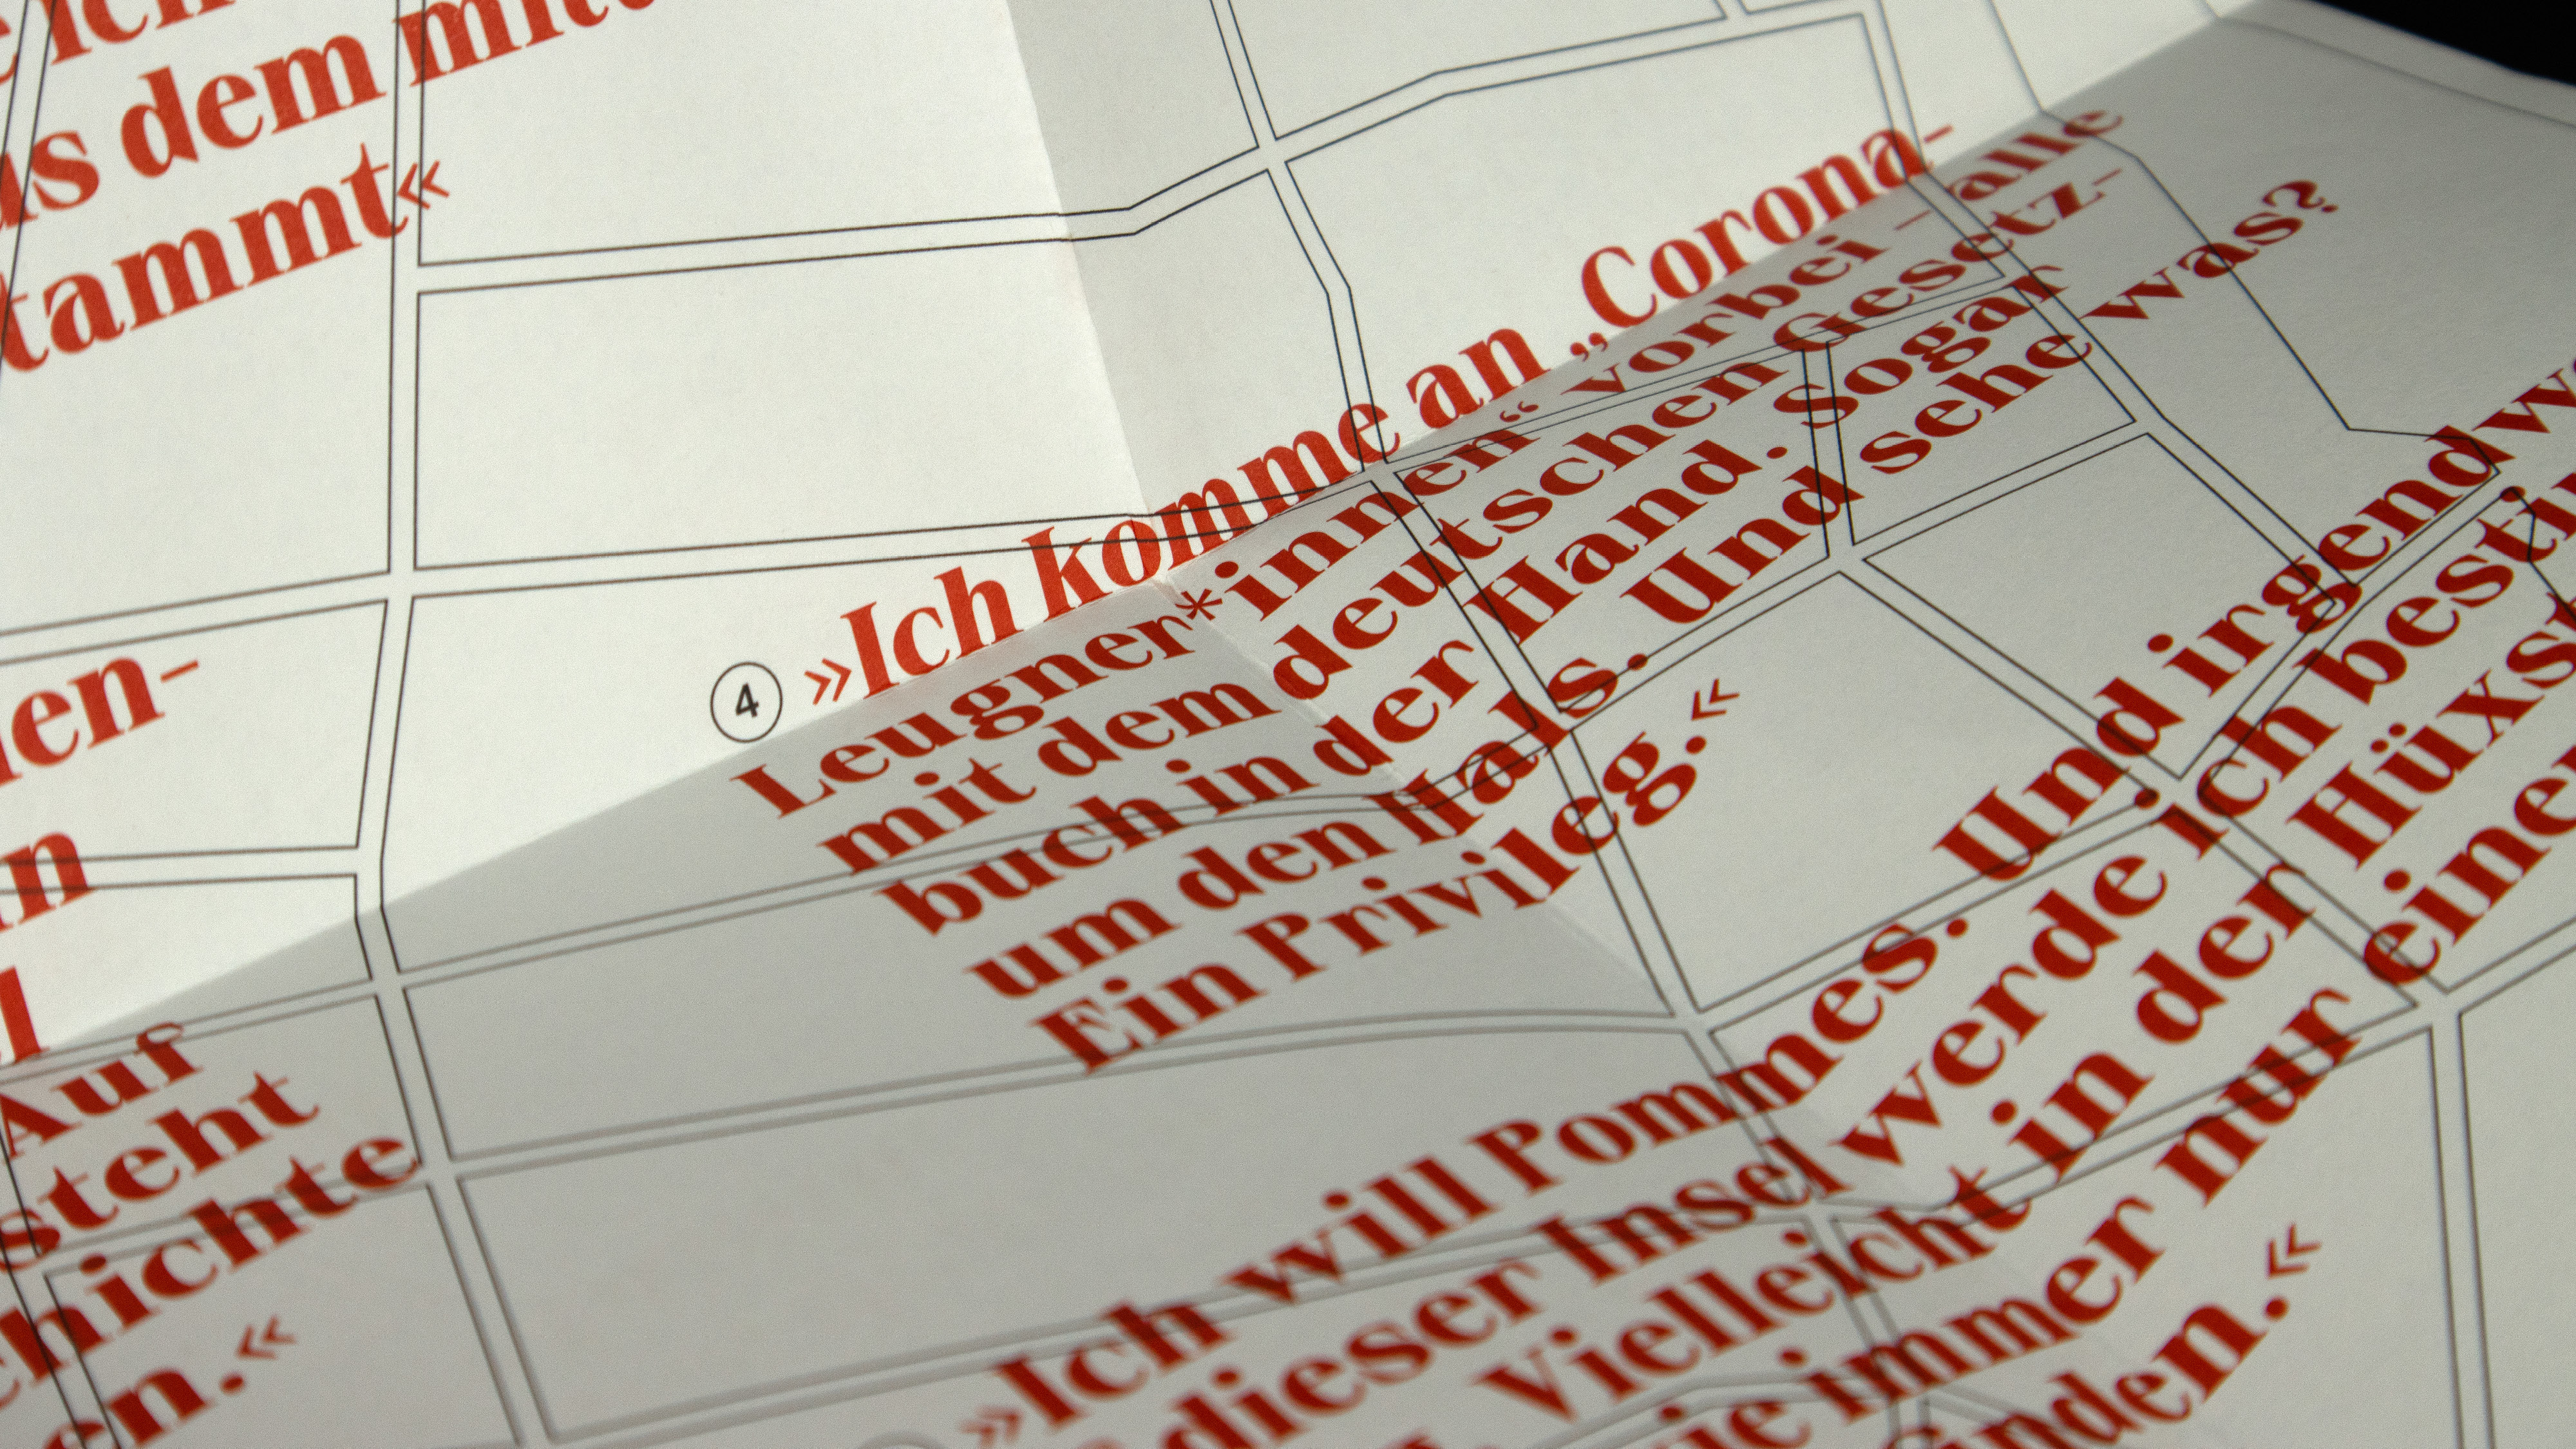 dem
tammt«
4
»Ich komme an „Corona-
Leugner*innen“ vorbei – alle
mit dem deutschen Gesetz-
buch in der Hand. Sogar
um den Hals. Und sehe was?
Ein Privileg.«
en-
n
Auf
steht
chichte
en.«
»Ich will Pommes. Und irgendw
dieser Insel werde ich besti
Vielleicht in der Hüxst
ie immer nur eine
inden.«